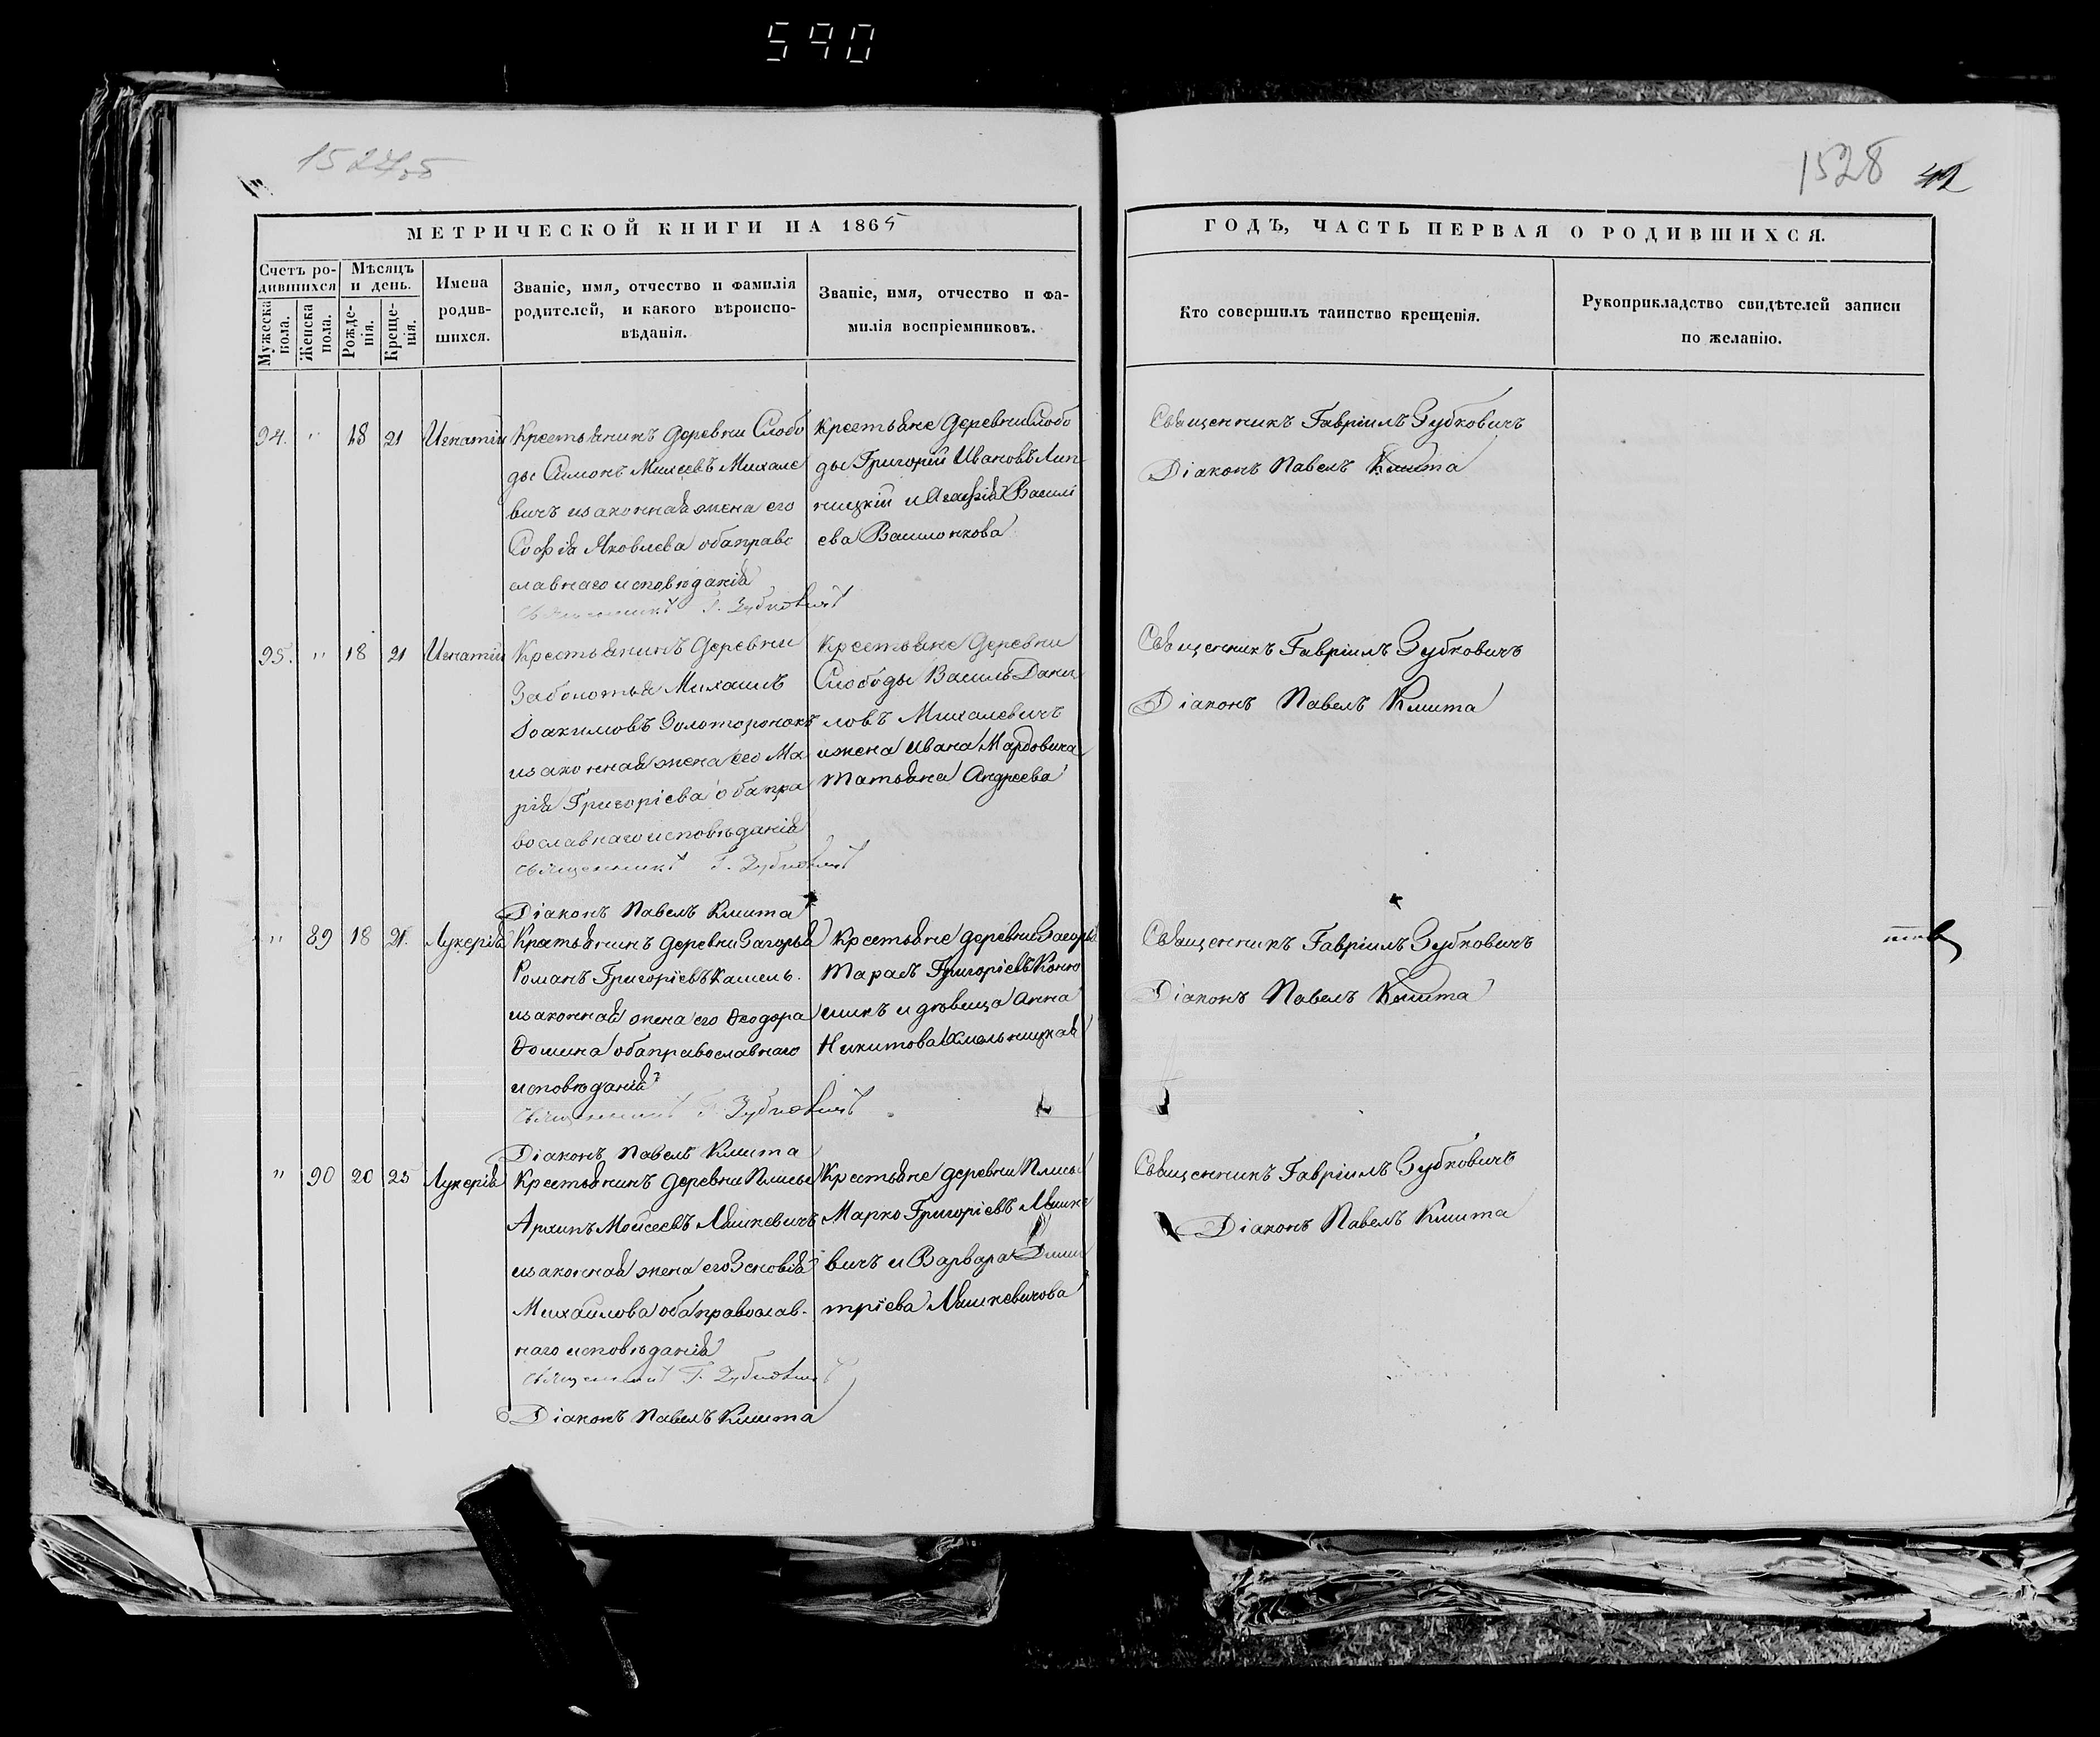 590
1528
42
МЕТРИЧЕСКОЙ КНИГИ НА 1865
ГОДЪ, ЧАСТЬ ПЕРВАЯ О РОДИВШИХСЯ.
Счетъ ро-
дившихся
Мужеска
пола.
Женска
пола.
Мѣсяцъ
и день.
Рожде-
нія.
Креще-
нія.
Имена
родив-
шихся.
Званіе, имя, отчество и фамилія
родителей, и какого вѣроиспо-
вѣданія.
Званіе, имя, отчество и фа-
милія воспріемниковъ.
Кто совершилъ таинство крещенія.
Рукоприкладство свидѣтелей записи
по желанію.
94. " 18 21 Игнатій
Крестьянинъ деревни Слобо
ды Симонъ Михеевъ Михале
вичъ изаконная жена его
Софія Яковлева обаправо
славнаго исповѣданія
Священникъ Г. Зубковичъ
Крестьяне деревни Слобо
ды Григорій Ивановъ Лип
ницкій и Агафія Василі
ева
Священникъ Гавріилъ Зубковичъ
Діаконъ Павелъ Кмита
95. " 18 21 Игнатій
Крестьянинъ деревни
Заболотья Михаилъ
Іоакимовъ
изаконная жена его Ма
рія Григоріева обапра
вославнаго исповѣданія
Священникъ Г. Зубковичъ
Діаконъ Павелъ Кмита
Крестьяне деревни
Слободы Василь Дани
ловъ Михалевичъ
ижена Ивана
Татьяна Андреева
Священникъ Гавріилъ Зубковичъ
Діаконъ Павелъ Кмита
" 89 18 21. Лукерія
Крестьянинъ деревни Загорья
Романъ Григоріевъ
изаконная жена его Ѳеодора
Ѳомина обаправославнаго
исповѣданія
Священникъ Г. Зубковичъ
Діаконъ Павелъ Кмита
Крестьяне деревни Загорья
Тарасъ Григоріевъ Коню
шикъ и дѣвица Анна
Никитова Хмельницкая
Священникъ Гавріилъ Зубковичъ
Діаконъ Павелъ Кмита
" 90 20 25 Лукерія
Крестьянинъ деревни
Архипъ Мойсеевъ
изаконная жена его Зеновія
Михайлова обаправослав-
наго исповѣданія
Священникъ Г. Зубковичъ
Діаконъ Павелъ Кмита
Крестьяне деревни
Марко Григоріевъ
вичъ и Варвара Дими
тріева
Священникъ Гавріилъ Зубковичъ
Діаконъ Павелъ Кмита